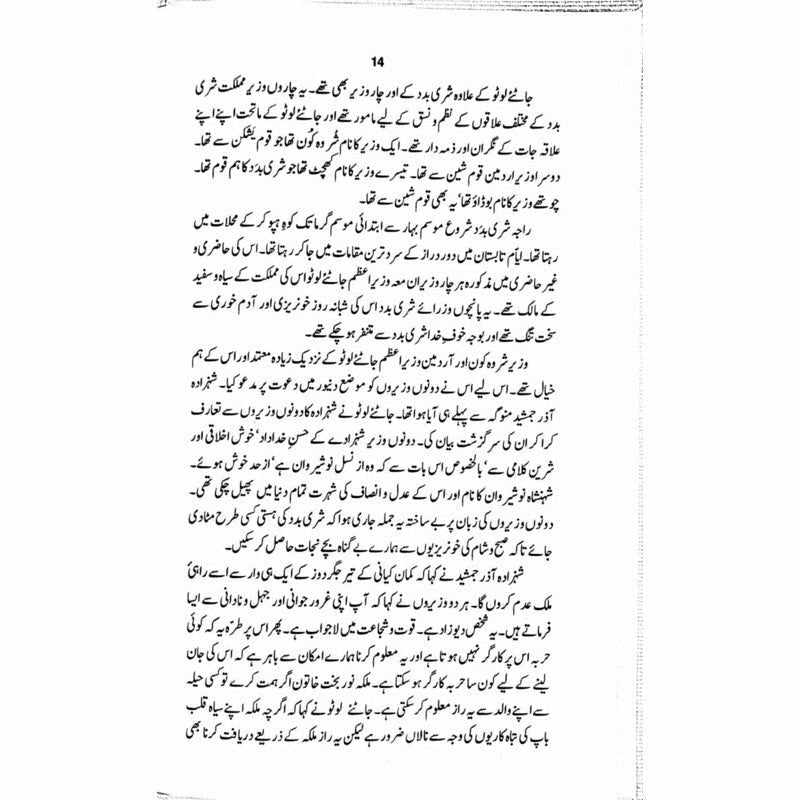 14
جاٹئے لوٹو کے علاوہ شری بدد کے اور چار وزیر بھی تھے۔ یہ چاروں وزیر مملکت شری
بدد کے مختلف علاقوں کے نظم و نسق کے لیے مامور تھے اور جاٹئے لوٹو کے ماتحت اپنے اپنے
علاقہ جات کے نگران اور ذمہ دار تھے۔ ایک وزیر کا نام شُروہ کُون تھا جو قوم یَشکن سے تھا۔
دوسرا وزیر اردمین قوم شین سے تھا۔ تیسرے وزیر کا نام کھچٹ تھا جو شری بدد کا ہم قوم تھا۔
چوتھے وزیر کا نام بوڈاؤ تھا‘ یہ بھی قوم شین سے تھا۔
راجہ شری بدد شروع موسم بہار سے ابتدائی موسم گرما تک کوہِ ہپو کر کے محلات میں
رہتا تھا۔ ایاّم تابستان میں دور دراز کے سرد ترین مقامات میں جا کر رہتا تھا۔ اس کی حاضری و
غیر حاضری میں مذکورہ ہر چار وزیران معہ وزیر اعظم جاٹئے لوٹو اس کی مملکت کے سیاہ و سفید
کے مالک تھے۔ یہ پانچوں وزرائے شری بدد اس کی شبانہ روز خونریزی اور آدم خوری سے
سخت تنگ تھے اور بوجہ خوفِ خدا شری بدد سے متنفر ہو چکے تھے۔
وزیر شروہ کون اور آردمین وزیر اعظم جاٹئے لوٹو کے نزدیک زیادہ معتمد اور اس کے ہم
خیال تھے۔ اس لیے اس نے دونوں وزیروں کو موضع دنیور میں دعوت پر مدعو کیا۔ شہزادہ
آذر جمشید منوگہ سے پہلے ہی آیا ہوا تھا۔ جاٹئے لوٹو نے شہزادہ کا دونوں وزیروں سے تعارف
کرا کر ان کی سرگزشت بیان کی۔ دونوں وزیر شہزادے کے حسنِ خداداد‘ خوش اخلاقی اور
شرین کلامی سے‘ بالخصوص اس بات سے کہ وہ از نسل نوشیروان ہے‘ از حد خوش ہوئے۔
شہنشاہ نوشیروان کا نام اور اس کے عدل و انصاف کی شہرت تمام دنیا میں پھیل چکی تھی۔
دونوں وزیروں کی زبان پر بے ساختہ یہ جملہ جاری ہوا کہ شری بدد کی ہستی کسی طرح مٹادی
جائے تا کہ صبح و شام کی خونریزیوں سے ہمارے بے گناہ بچے نجات حاصل کر سکیں۔
شہزادہ آذر جمشید نے کہا کہ کمان کیانی کے تیر جگر دوز کے ایک ہی وار سے اسے راہیٔ
ملک عدم کروں گا۔ ہر دو وزیروں نے کہا کہ آپ اپنی غرور جوانی اور جہل و نادانی سے ایسا
فرماتے ہیں۔ یہ شخص دیوزاد ہے۔ قوت و شجاعت میں لاجواب ہے۔ پھر اس پر طرّہ یہ کہ کوئی
حربہ اس پر کارگر نہیں ہوتا ہے اور یہ معلوم کرنا ہمارے امکان سے باہر ہے کہ اس کی جان
لینے کے لیے کون سا حربہ کارگر ہو سکتا ہے۔ ملکہ نور بخت خاتون اگر ہمت کرے تو کسی حیلہ
سے اپنے والد سے یہ راز معلوم کر سکتی ہے۔ جاٹئے لوٹو نے کہا کہ اگرچہ ملکہ اپنے سیاہ قلب
باپ کی تباہ کاریوں کی وجہ سے نالاں ضرور ہے لیکن یہ راز ملکہ کے ذریعے دریافت کرنا بھی